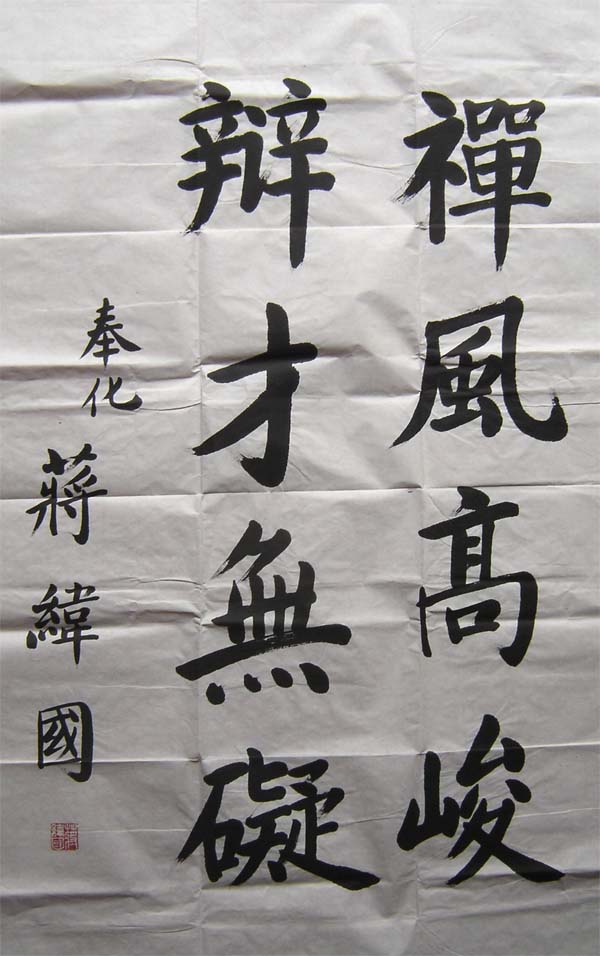 禪風高峻
辯才無礙
奉化 蔣緯國